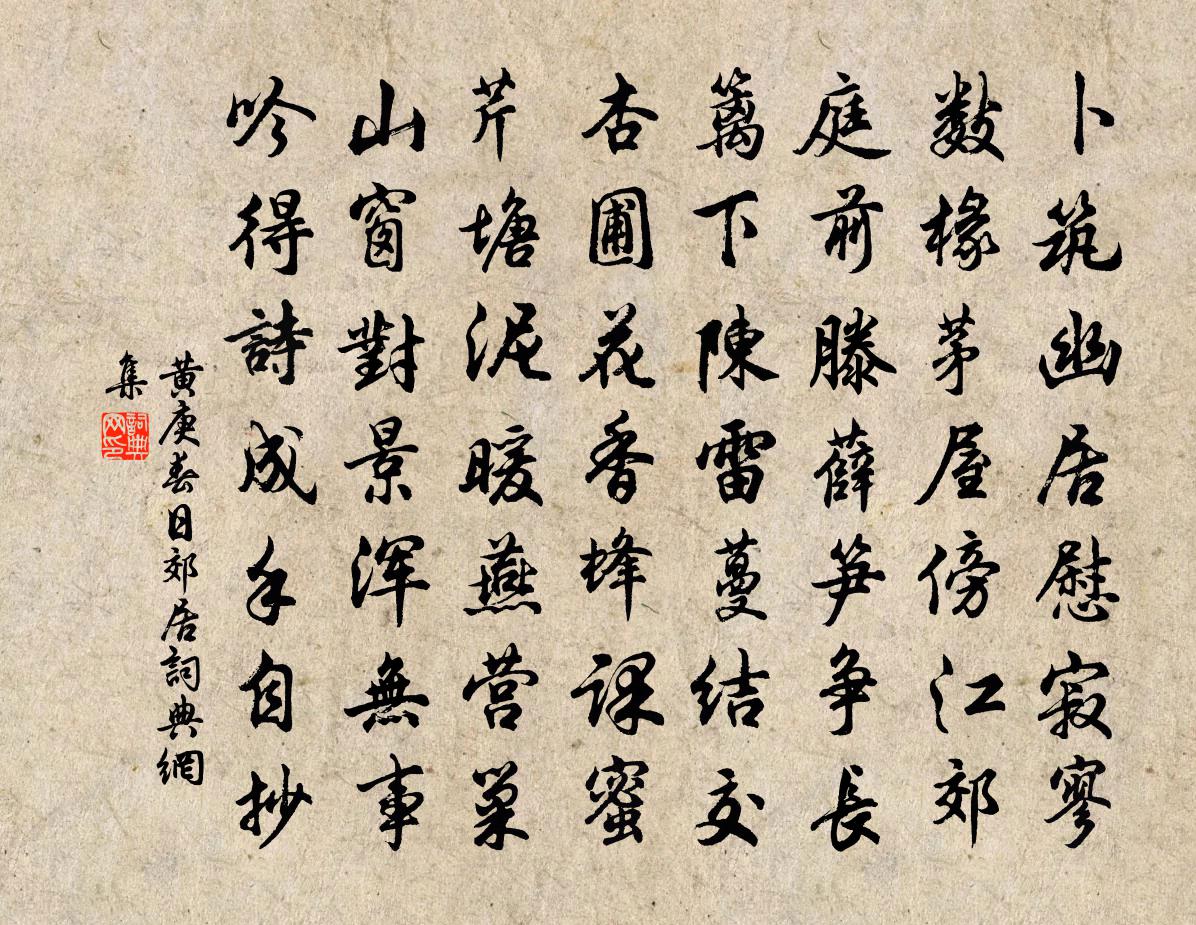 卜筑幽居慰寂寥
数椽茅屋傍江郊
庭前滕薛笋争長
篱下陳雷蔓結交
杏圃花香蜂课蜜
芹塘泥暖燕营巢
山窗對景浑無事
吟得詩成手自抄
黄庚春日郊居詞典網
集
詞典
网印